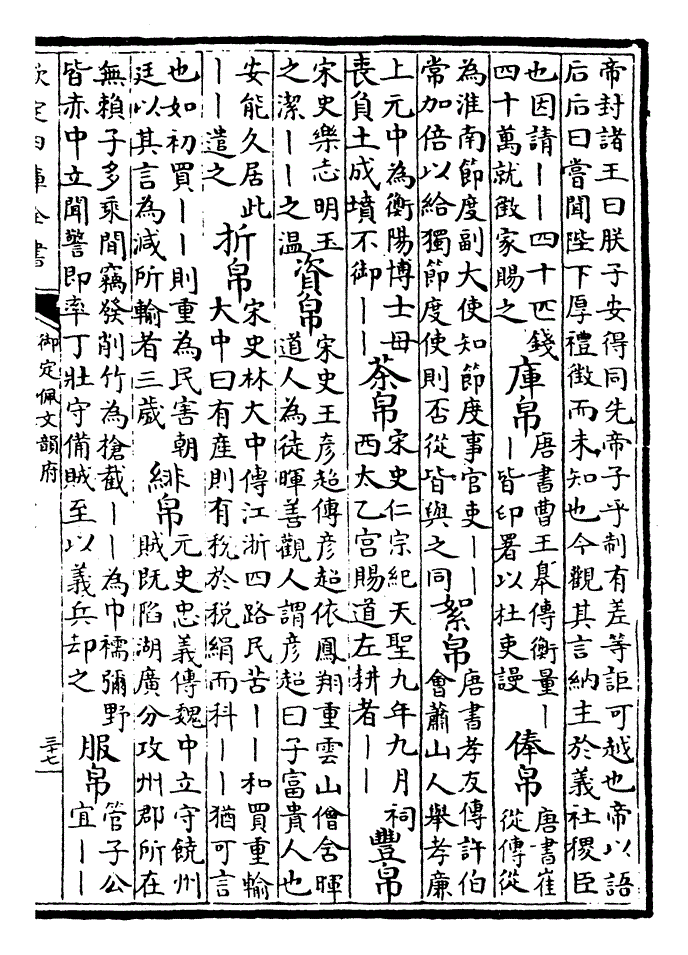 帝封諸王曰朕子安得同先帝子乎制有差等詎可越也帝以語
后后曰嘗聞陛下厚禮徵而未知也今觀其言納主於義社稷臣
也因請——四十匹錢
四十萬就徵家賜之
庫帛
唐書曹王臯傳衡量—
—皆印署以杜吏謾
俸帛
唐書崔
從傳從
為淮南節度副大使知節度事官吏——
常加倍以給獨節度使則否從皆與之同
絮帛
唐書孝友傳許伯
會蕭山人舉孝廉
上元中為衡陽博士母
喪負土成墳不御——
茶帛
宋史仁宗紀天聖九年九月祠
西太乙宮賜道左耕者——
豐帛
宋史樂志明玉
之潔——之溫
資帛
宋史王彥超傳彥超依鳳翔重雲山僧舍暉
道人為徒暉善觀人謂彥超曰子富貴人也
安能久居此
——遣之
折帛
宋史林大中傳江浙四路民苦——和買重輸
大中曰有產則有稅於稅絹而科——猶可言
也如初買——則重為民害朝
廷以其言為減所輸者三歲
緋帛
元史忠義傳魏中立守饒州
賊既陷湖廣分攻州郡所在
無賴子多乘間竊發削竹為槍截——為巾襦彌野
皆赤中立聞警即率丁壯守備賊至以義兵却之
服帛
管子公
宜——
欽定四庫全書
御定佩文韻府
三十七